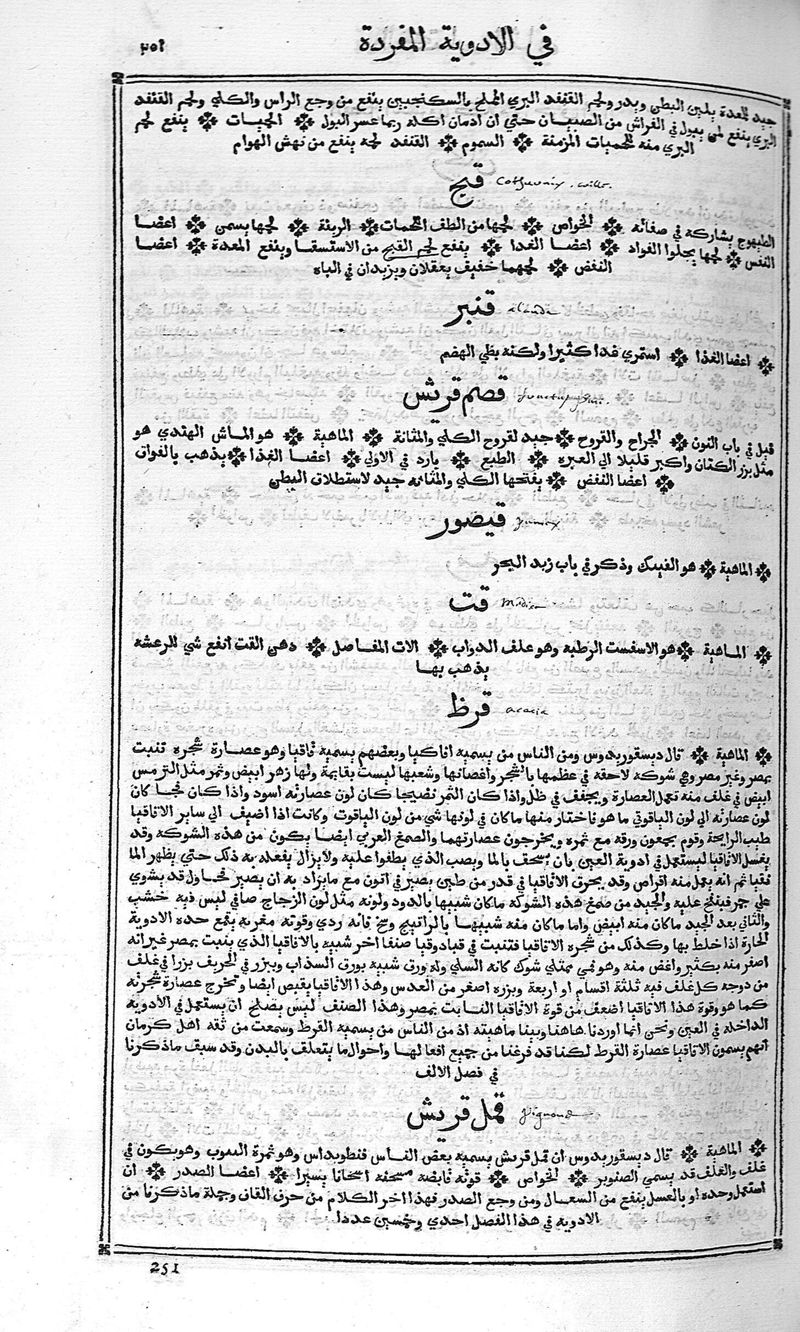 في الادوية المفردة
٢٥١
جيد للمعدة يلين البطن ويدر ولحم القنفد البري المملح بالسكنجبين ينفع من وجع الراس والكلي ولحم القنفد
البري ينفع لمن يبول في الفراش من الصبيان حتي ان ادمان اكله ربما عسر البول ❖ الحميات ❖ ينفع لحم
البري منه للحميات المزمنة ❖ السموم ❖ القنفد لحمه ينفع من نهش الهوام
قبج
الطيهوج يشاركه في صفاته ❖ الخواص ❖ لحمها من الطف اللحمات ❖ الزينة ❖ لحمها يسمن ❖ اعضا
النفس ❖ لحمها يجلوا الفواد ❖ اعضا الغدا ❖ ينفع لحم القبج من الاستسقا وينفع المعدة ❖ اعضا
النفض ❖ لحمهما خفيف يعقلان ويزيدان في الباه
قنبر
❖ اعضا الغدا ❖ استمري غدا كثيرا ولكنه بطي الهضم
قصم قريش
قيل في باب النون ❖ الجراح والقروح ❖ جيد لقروح الكلي والمثانة ❖ الماهية ❖ هو الماش الهندي هو
مثل بزر الكتان واكبر قليلا الي الغبره ❖ الطبع ❖ بارد في الاولي ❖ اعضا الغدا ❖ يذهب بالفواق
❖ اعضا النفض ❖ ينفعها الكلي والمثانه جيد لاستطلاق البطن
قيصور
❖ الماهية ❖ هو الفينك وذكر في باب زبد البحر
قت
❖ الماهية ❖ هو الاسفست الرطبه وهو علف الدواب ❖ الات المفاصل ❖ دهن القت انفع شي للرعشه
يذهب بها
قرظ acacia
❖ الماهية ❖ قال ديسقوريدوس ومن الناس من يسميه اقاكيا وبعضهم يسميه قاقيا وهو عصارة شجره تنبت
بمصر وغير مصر وهي شوكه لاحقه في عظمها بالشجر واغصانها وشعبها ليست بقايمة ولها زهر ابيض وثمر مثل الترمس
ابيض في غلف منه تعمل العصارة ويجفف في ظل واذا كان الثمر نضيجا كان لون عصارته اسود واذا كان فجا كان
لون عصارته الي لون الياقوتي ما هو فاختار منها ما كان في لونها شي من لون الياقوت وكانت اذا اضيف الي ساير الاقاقيا
طيب الرايحة وقوم يجمعون ورقه مع ثمره ويخرجون عصارتهما والصمغ العربي ايضا يكون من هذه الشوكه وقد
يغسل الاقاقيا ليستعمل في ادوية العين بان يسحف بالما ويصب الذي يطفوا عليه ولا يزال يفعل به ذلك حتي يظهر الما
نقيا ثم انه يعمل منه اقراص وقد يحرق الاقاقيا في قدر من طين يصير في اتون مع مايزاد به ان يصير فخارا وقد يشوي
علي جمر فينفخ عليه والجيد من صمغ هذه الشوكه ماكان شبيها بالدود ولونه مثل لون الزجاج صافي ليس فيه خشب
والثاني بعد الجيد ماكان منه ابيض واما ماكان منه شبيها بالراتينج وسخ فانه ردي وقوته مغريه يقمع حده الادوية
الحارة اذا خلط بها وكذلك من شجره الاقاقيا فتنبت في قبادوقيا صنفا اخر شبيه بالاقاقيا الذي ينبت بمصر غير انه
اصغر منه بكثير واغض منه وهو قمي ممتلي شوك كانه السلي وله ورق شبيه بورق السذاب ويبزر في الخريف بزرا في غلف
مزدوجه كل غلف فيه ثلثة اقسام او اربعة وبزره اصغر من العدس وهذا الاقاقيا يقبض ايضا وتخرج عصارة شجرته
كما هو وقوة هذا الاقاقيا اضعف من قوة الاقاقيا النابت بمصر وهذا الصنف ليس يصلح ان يستعمل في الادوية
الداخلة في العين ونحن انما اوردنا هاهنا وبينا ماهيته اذ من الناس من يسميه القرط وسمعت من ثقه اهل كرمان
انهم يسمون الاقاقيا عصارة القرط لكنا قد فرغنا من جميع افعالها واحوال ما يتعلف بالبدن وقد سبف ماذكرنا
في فصل الالف
قمل قريش
❖ الماهية ❖ قال ديسقوريدوس ان قمل قريش يسميه بعض الناس فنطويداس وهو ثمرة الينبوب وهو يكون في
غلف والغلف قد يسمي الصنوبر ❖ الخواص ❖ قوته قابضه مسخنه اسخانا يسيرا ❖ اعضا الصدر ❖ ان
استعمل وحده او بالعسل ينفع من السعال ومن وجع الصدر فهذا اخر الكلام من حرف القاف وجملة ماذكرنا من
الادوية في هذا الفصل احدي وخمسين عددا
251